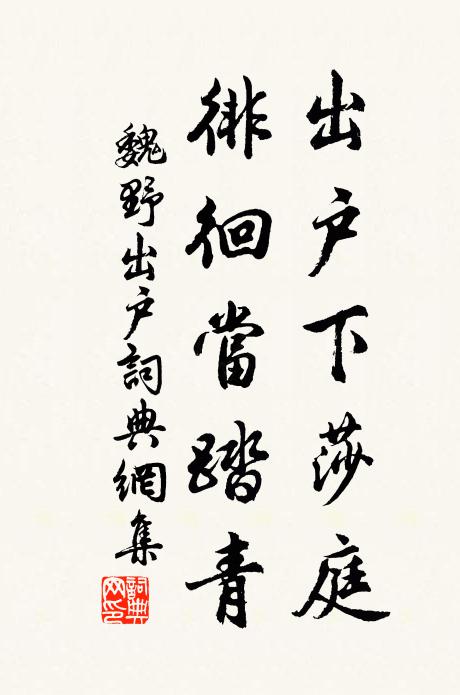 出户下莎庭
徘徊當踏青
魏野出户詞典網集
詞典網印